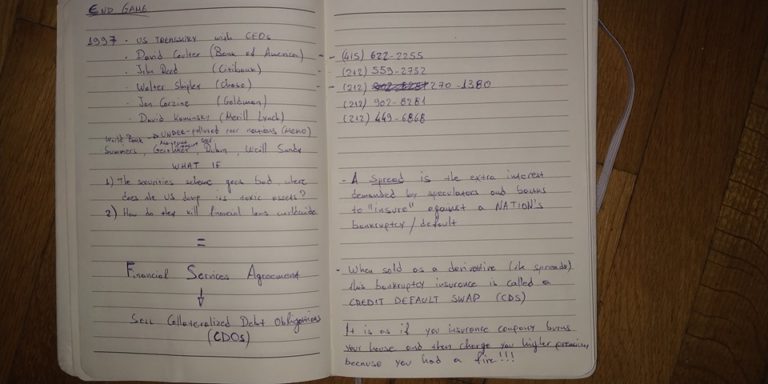 END GAME
1997 · US TREASURY with CEOs
· David Coulter (Bank of America)
· John Reed (Citibank)
· Walter Shipley (Chase)
· Jon Corzine (Goldman)
· David Komansky (Merill Lynch)
World Bank → UNDER-polluted poor nations (Memo)
Summers, Geithner, Rubin, Weill Sandy
WHAT IF
1) The securities scheme goes bad where
does the US dump its toxic assets?
2) How do they kill financial laws worldwide
=
Financial Services Agreement
↓
Sell Collateralized Debt Obligations
(CDOs)
- (415) 622-2255
(212) 559-2732
- (212) 270-1380
(212) 902-8281
(212) 449-6868
- A Spread is the extra interest
demanded by speculators and banks
to "insure" against a NATION's
bankruptcy / default
- When sold as a derivative (ik spreads)
this bankruptcy insurance is called a
CREDIT DEFAULT SWAP (CDS)
It is as if you insurance company burns
your house and then charge you higher premium,
because you had a fire!!!